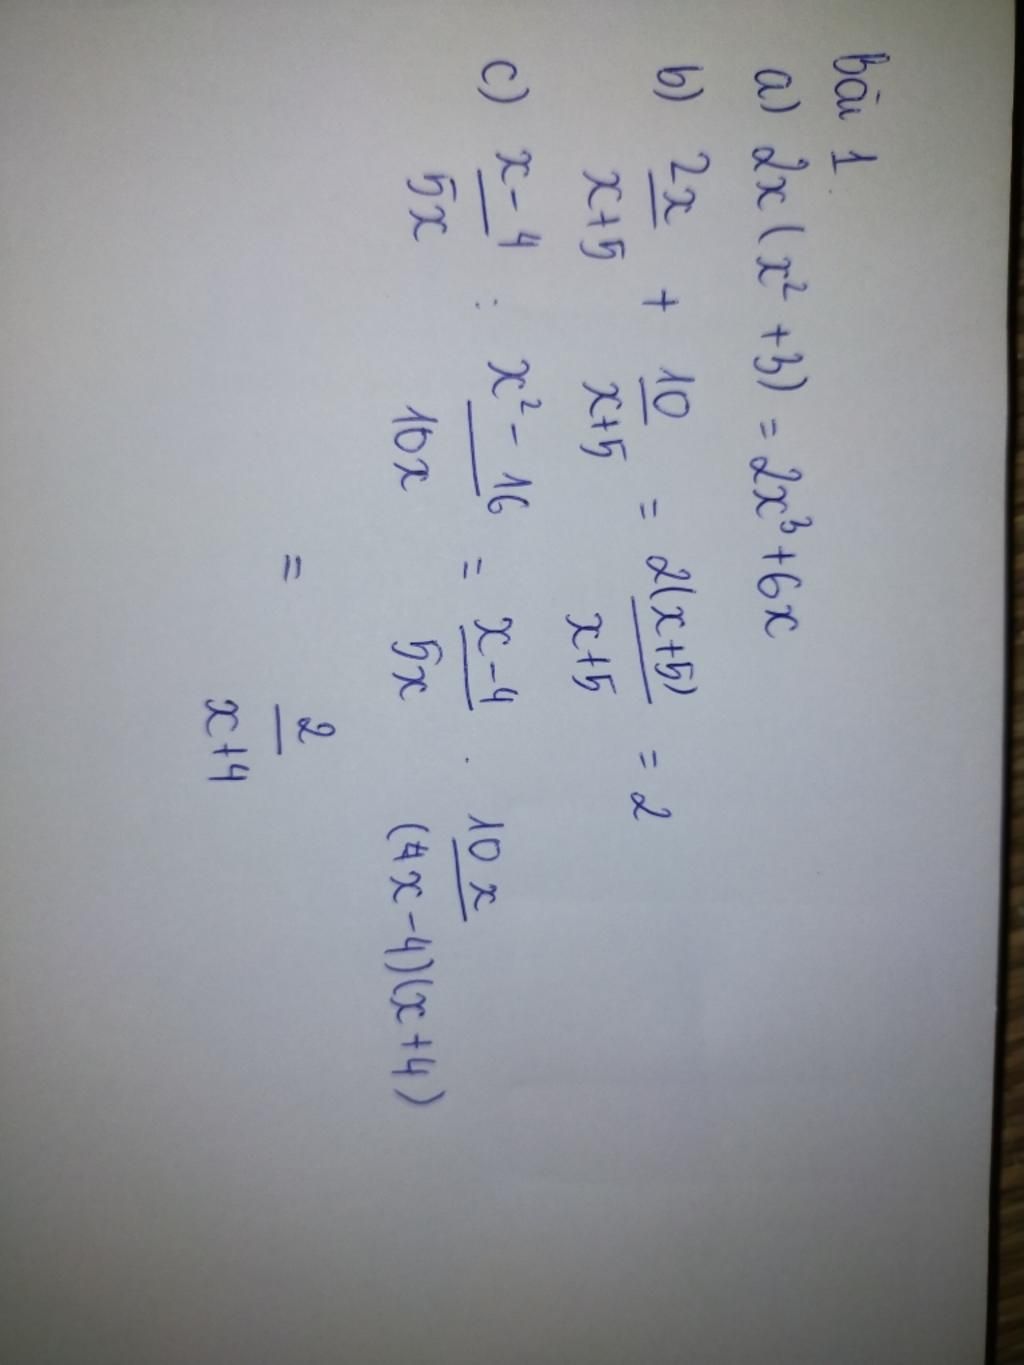 Bài 1
a) 2x(x² + 3) = 2x³ + 6x
b) 2x/x+5 + 10/x+5 = 2(x+5)/x+5 = 2
c) x-4/5x : x²-16/10x = x-4/5x . 10x/(4x-4)(x+4)
= 2/x+4